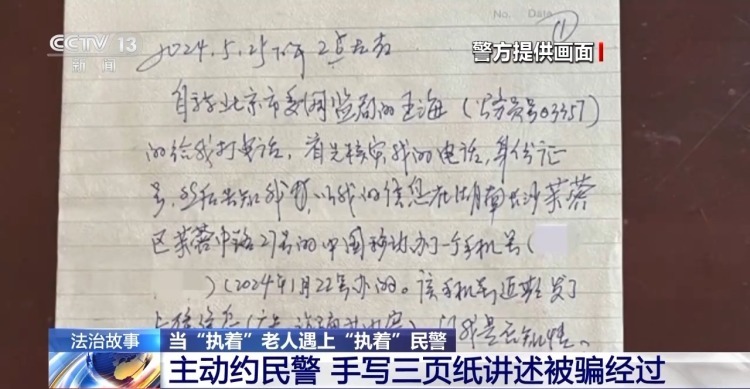 CCTV 13
新闻
No.
Date
①
警方提供画面
2024.5.25下午2点左右
自称北京市委网监局的王海(警员号03357)
的给我打电话,首先核实我的电话,身份证
号,然后告知我,以我的信息在湖南长沙芙蓉
区芙蓉中路27号的中国移动办了一个手机号(
)(2024年1月22号办的。该手机号近期发了
法治故事
当“执着”老人遇上“执着”民警
主动约民警 手写三页纸讲述被骗经过